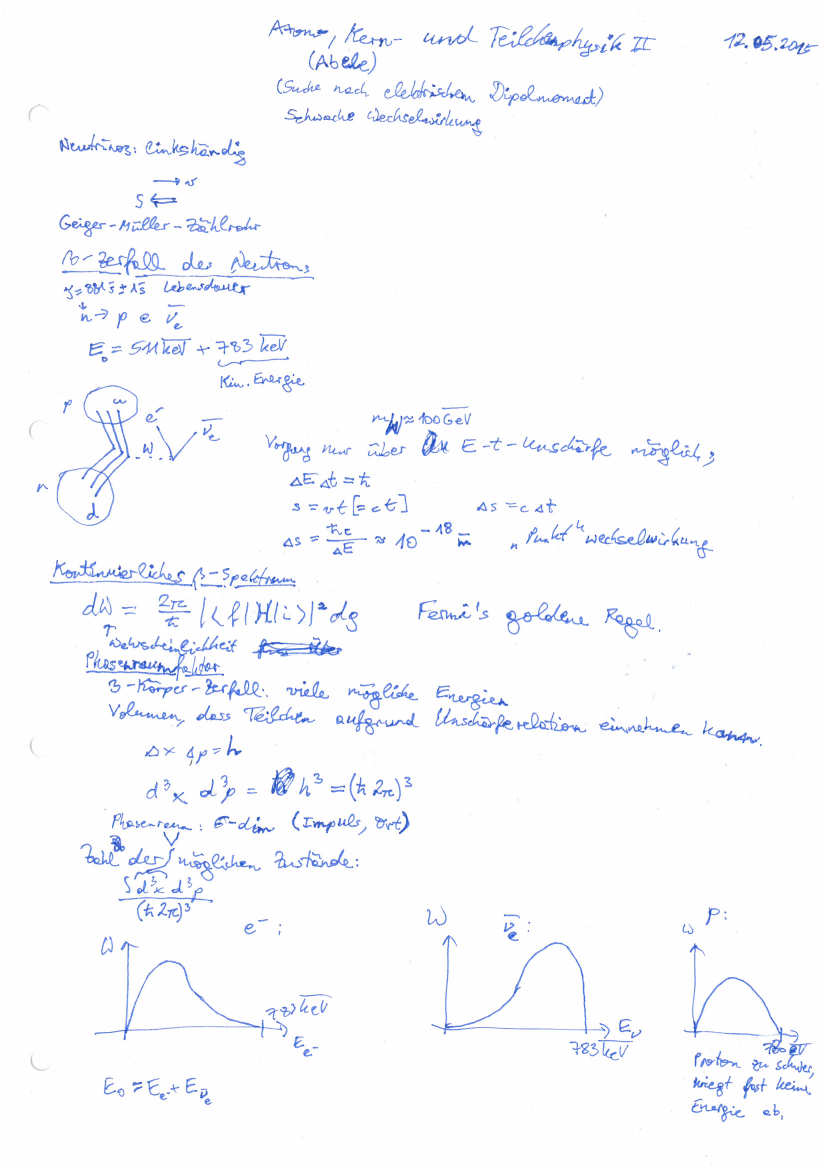 Atom-, Kern- und Teilchenphysik II 12.05.2015
(Abele)
(Suche nach elektrischem Dipolmoment)
Schwache Wechselwirkung
Neutrinos: linkshändig
→ v
S ⇐
Geiger-Müller-Zählrohr
β-Zerfall des Neutrons
τ = 881 s ± 1 s Lebensdauer
n → p e ν̄e
E₀ = 511 keV + 783 keV
Kin. Energie
p u e⁻ ν̄e
W
n d
mW ≈ 100 GeV
Vorgang nur über E-t-Unschärfe möglich;
ΔE Δt = ħ
s = vt [= ct] Δs = c Δt
Δs = ħc/ΔE ≈ 10⁻¹⁸ m „Punkt“wechselwirkung
Kontinuierliches β-Spektrum
dW = 2π/ħ |<f|H|i>|² dϱ Fermi's goldene Regel.
↑
Wahrscheinlichkeit
Phasenraumfaktor
3-Körper-Zerfall: viele mögliche Energien
Volumen, dass Teilchen aufgrund Unschärferelation einnehmen kann.
Δx Δp = h
d³x d³p = h³ = (ħ 2π)³
Phasenraum: 6-dim (Impuls, Ort)
Zahl der möglichen Zustände:
V
∫ d³x d³p
(ħ 2π)³
e⁻:
W
783 keV
E e⁻
E₀ = Ee⁻ + Eν̄e
ν̄e:
W
Eν
783 keV
P:
W
780 eV
Proton zu schwer,
kriegt fast keine
Energie ab.